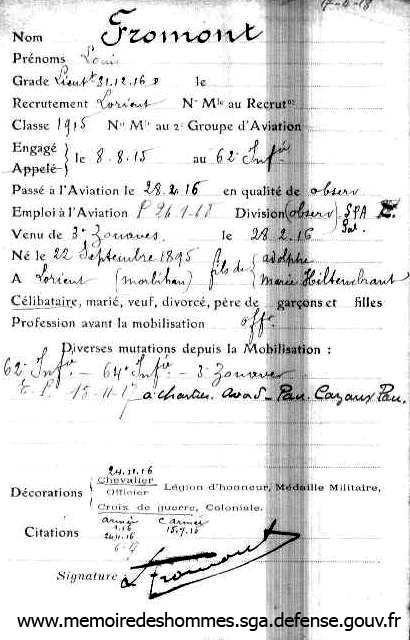 Nom Fromont
Prénoms Louis
Grade Lieutt 31.12.16 le
Recrutement Lorient No Mle au Recrutnt
Classe 1915 No Mle au 2e Groupe d'Aviation
Engagé
Appelé } le 8.8.15 au 62e Infie
Passé à l'Aviation le 28.2.16 en qualité de observ
Emploi à l'Aviation P 26.1.18 Division (observ) SPA
Venu de 3e Zouaves le 28.2.16
Né le 22 Septembre 1895 fils de { adolphe
A Lorient (morbihan) Marie Hiltenbrant
Célibataire, marié, veuf, divorcé, père de garçons et filles
Profession avant la mobilisation
Diverses mutations depuis la Mobilisation :
62e Infie - 64e Infie - 3e Zouaves
15-11-17 à Chartres. Avord - Pau. Cazaux Pau.
24.11.16
Décorations { Chevalier
Officier Légion d'honneur, Médaille Militaire,
Croix de guerre, Coloniale.
armée C. armée
Citations 15.7.16
Signature Fromont
www.memoiredeshommes.sga.defense.gouv.fr